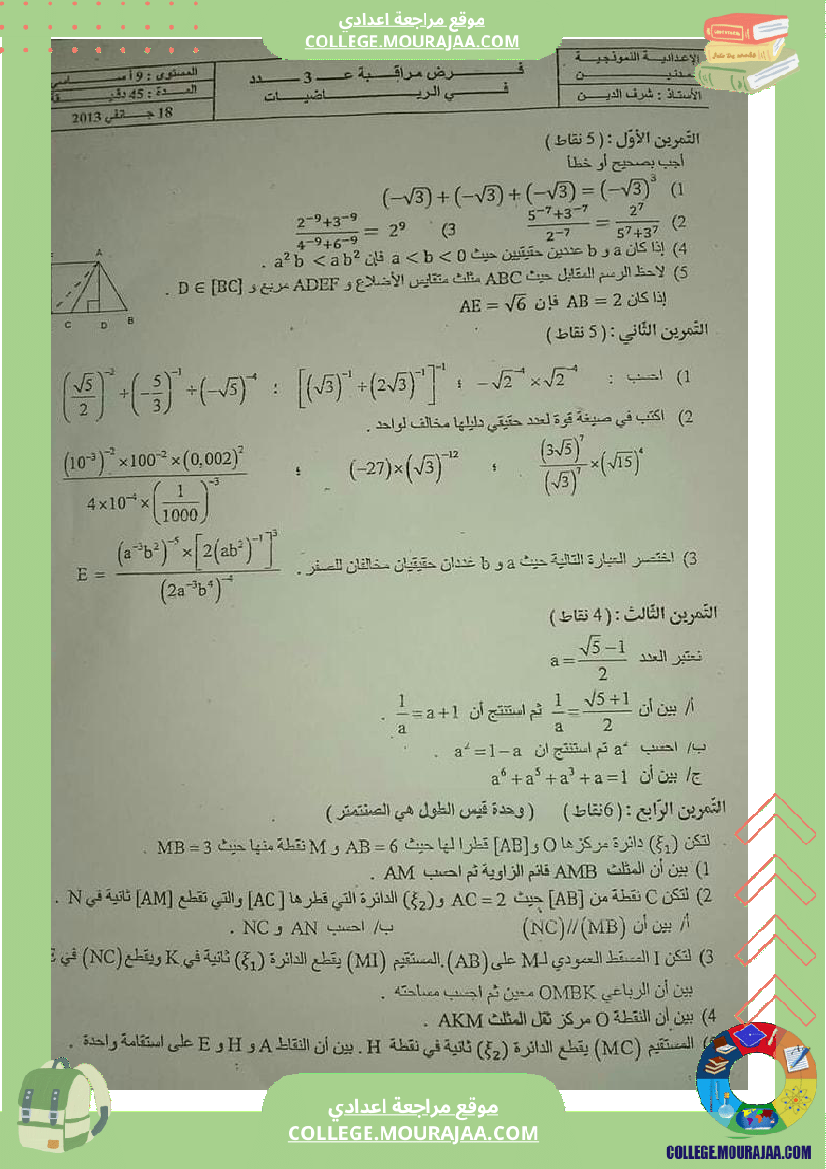 موقع مراجعة اعدادي
COLLEGE.MOURAJAA.COM
الإعدادية النموجية
بمدنين
الأستاذ : شرف الدين
فـــرض مراقـبة عـــ 3 ـــدد
فـــي الريـــاضيـــات
المستوى : 9 أساسي
المدة : 45 دقيقة
18 جـــانفي 2013
التمرين الأوّل : ( 5 نقاط )
أجب بصحيح أو خطأ
1) (−√3) + (−√3) + (−√3) = (−√3)³
2) (5⁻⁷+3⁻⁷)/2⁻⁷ = 2⁷/(5⁷+3⁷) 3) (2⁻⁹+3⁻⁹)/(4⁻⁹+6⁻⁹) = 2⁹
4) إذا كان a و b عددين حقيقيين حيث a < b < 0 فإن a²b < ab² .
5) لاحظ الرسم المقابل حيث ABC مثلث متقايس الأضلاع و ADEF مربع و D ∈ [BC] .
إذا كان AB = 2 فإن AE = √6
A
C D B
التمرين الثّاني : ( 5 نقاط )
1) احسب : −√2⁻⁴ × √2⁻⁴ ؛ [(√3)⁻¹ + (2√3)⁻¹]⁻¹ ; (√5/2)⁻² + (−5/3)⁻¹ ÷ (−√5)⁻⁴
2) اكتب في صيغة قوة لعدد حقيقي دليلها مخالف لواحد .
(3√5)⁷/(√3)⁷ × (√15)⁴ ؛ (−27)×(√3)⁻¹² ؛ ((10⁻³)⁻² × 100⁻² × (0,002)²)/(4×10⁻⁴ × (1/1000)⁻³)
3) اختصر العبارة التالية حيث a و b عددان حقيقيان مخالفان للصفر . E = ((a⁻³b²)⁻⁵ × [2(ab²)⁻¹]³)/(2a⁻³b⁴)⁻⁴
التمرين الثّالث : ( 4 نقاط )
نعتبر العدد a = (√5−1)/2
أ/ بين أن 1/a = (√5+1)/2 ثم استنتج أن 1/a = a+1 .
ب/ احسب a² ثم استنتج ان a² = 1−a .
ج/ بين أن a⁶ + a⁵ + a³ + a = 1
التمرين الرّابع : ( 6 نقاط ) ( وحدة قيس الطول هي الصنتمتر )
لتكن (ξ₁) دائرة مركزها O و [AB] قطرا لها حيث AB = 6 و M نقطة منها حيث MB = 3 .
1) بين أن المثلث AMB قائم الزاوية ثم احسب AM .
2) لتكن C نقطة من [AB] حيث AC = 2 و (ξ₂) الدائرة التي قطرها [AC] والتي تقطع [AM] ثانية في N .
أ/ بين أن (NC)//(MB) ب/ احسب AN و NC .
3) لتكن I المسقط العمودي لـ M على (AB) .المستقيم (MI) يقطع الدائرة (ξ₁) ثانية في K ويقطع (NC) في E
بين أن الرباعي OMBK معين ثم احسب مساحته .
4) بين أن النقطة O مركز ثقل المثلث AKM .
المستقيم (MC) يقطع الدائرة (ξ₂) ثانية في نقطة H . بين أن النقاط A و H و E على استقامة واحدة .
موقع مراجعة اعدادي
COLLEGE.MOURAJAA.COM
COLLEGE.MOURAJAA.COM